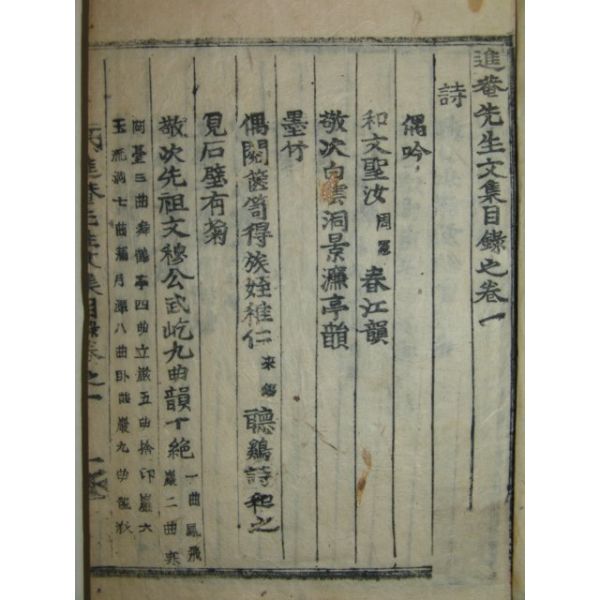 進菴先生文集目錄之卷一
詩
偶吟
和文聖汝 春江韻
敬次白雲洞景濂亭韻
墨竹
偶閱舊笥得族姪稚仁 來 聽鷄詩和之
見石壁有菊
敬次先祖文穆公武屹九曲韻十絶 一曲鳳飛
巖二曲寒
三曲 亭四曲立巖五曲捨印巖六
玉流洞七曲 月潭八曲卧龍巖九曲龍湫
進菴先生文集目錄卷之一 一